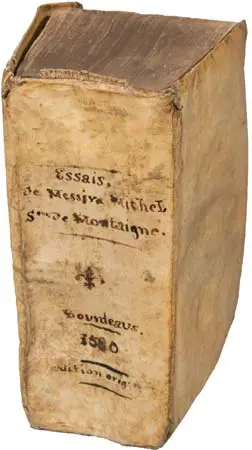 Essais,
De Messire Michel
Sr. De Montaigne.
Bourdeaus.
1580
edition origin